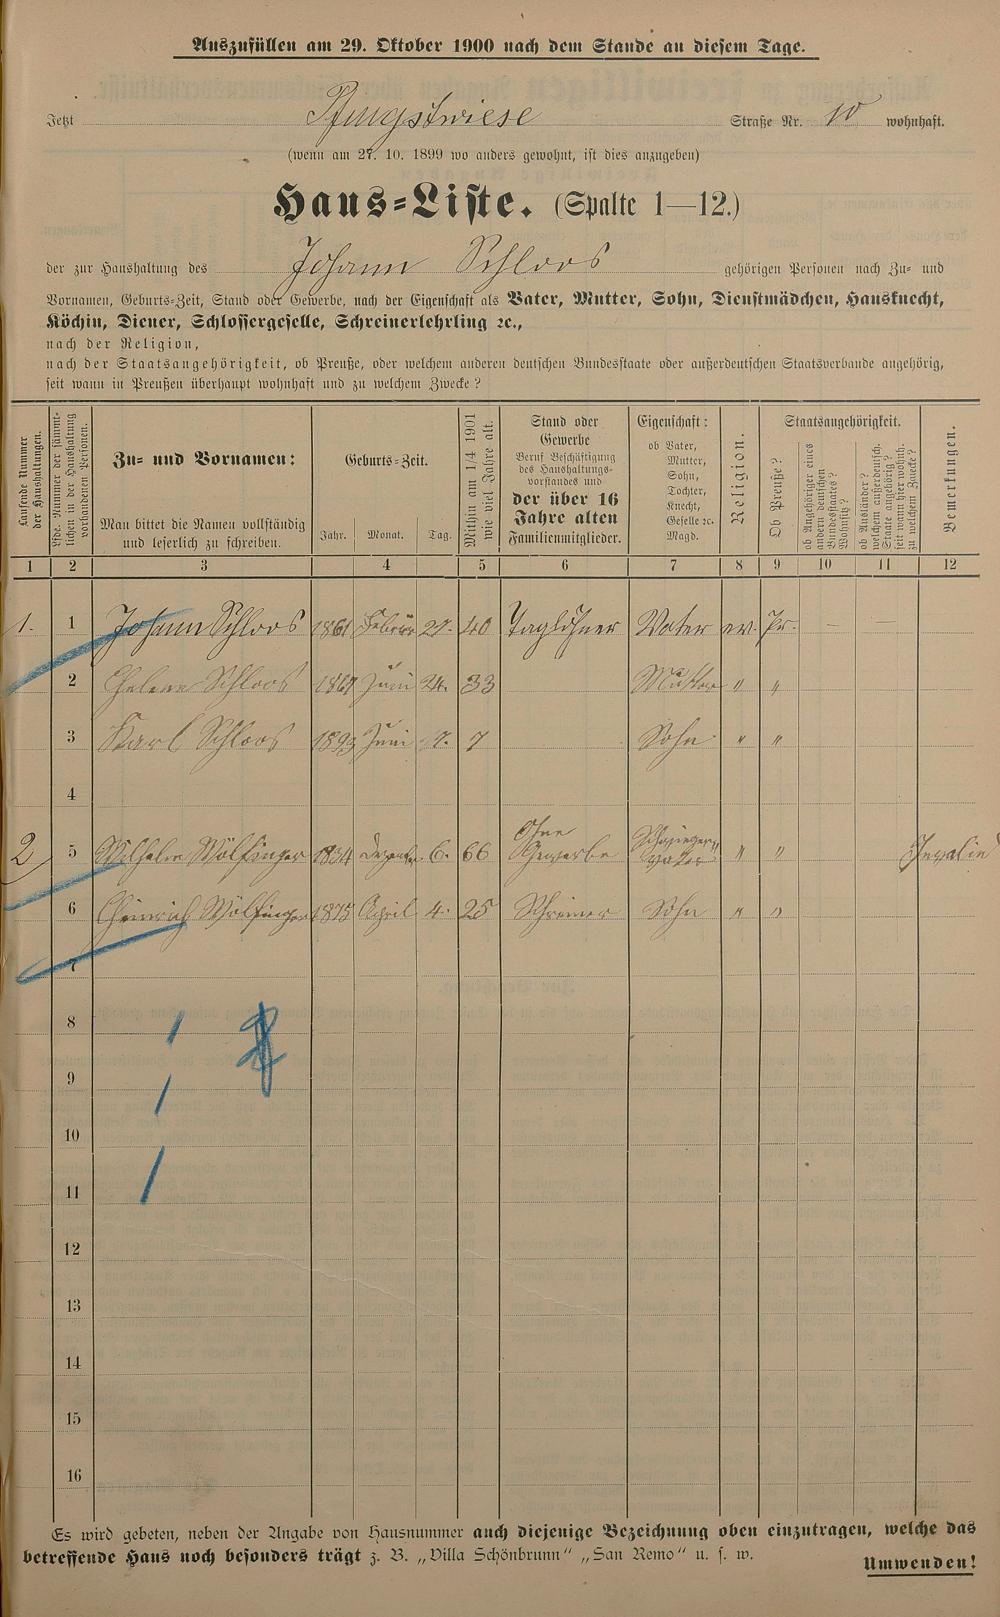 Auszufüllen am 29. Oktober 1900 nach dem Stande an diesem Tage.
Jetzt Pfingstwiese Straße Nr. 10 wohnhaft.
(wenn am 27. 10. 1899 wo anders gewohnt, ist dies anzugeben)
Haus-Liste. (Spalte 1—12.)
der zur Haushaltung des Johann Schloos gehörigen Personen nach Zu- und
Vornamen, Geburts-Zeit, Stand oder Gewerbe, nach der Eigenschaft als Vater, Mutter, Sohn, Dienstmädchen, Hausknecht,
Köchin, Diener, Schlossergeselle, Schreinerlehrling ꝛc.,
nach der Religion,
nach der Staatsangehörigkeit, ob Preuße, oder welchem anderen deutschen Bundesstaate oder außerdeutschen Staatsverbande angehörig,
seit wann in Preußen überhaupt wohnhaft und zu welchem Zwecke?
Laufende Nummer
der Haushaltungen.
Lfde. Nummer der sämmt-
lichen in der Haushaltung
vorhandenen Personen.
Zu- und Vornamen:
Man bittet die Namen vollständig
und leserlich zu schreiben.
Geburts-Zeit.
Jahr. Monat. Tag.
Mithin am 1/4 1901
wie viel Jahre alt.
Stand oder
Gewerbe
Beruf Beschäftigung
des Haushaltungs-
vorstandes und
der über 16
Jahre alten
Familienmitglieder.
Eigenschaft:
ob Vater,
Mutter,
Sohn,
Tochter,
Knecht,
Geselle ꝛc.
Magd.
Religion.
Staatsangehörigkeit.
Ob Preuße?
ob Angehöriger eines
andern deutschen
Bundesstaates?
Wohnsitz?
ob Ausländer?
welchem außerdeutsch.
Staate angehörig?
seit wann hier wohnh.
zu welchem Zwecke?
Bemerkungen.
1 2 3 4 5 6 7 8 9 10 11 12
1. 1 Johann Schloos 1861 Februar 27. 40 Taglöhner Vater ev. Pr. — —
2 Helene Schloos 1867 Juni 24. 33 Mutter " "
3 Karl Schloos 1893 Juni 7. 7 Sohn " "
4
2 5 Wilhelm Wölfinger 1834 Dezember 6. 66 Ohne Gewerbe Schwiegervater " " Invalid
6 Heinrich Wölfinger 1875 April 4. 25 Schreiner Sohn " "
7
8
9
10
11
12
13
14
15
16
Es wird gebeten, neben der Angabe von Hausnummer auch diejenige Bezeichnung oben einzutragen, welche das
betreffende Haus noch besonders trägt z. B. „Villa Schönbrunn" „San Remo" u. s. w.
Umwenden!